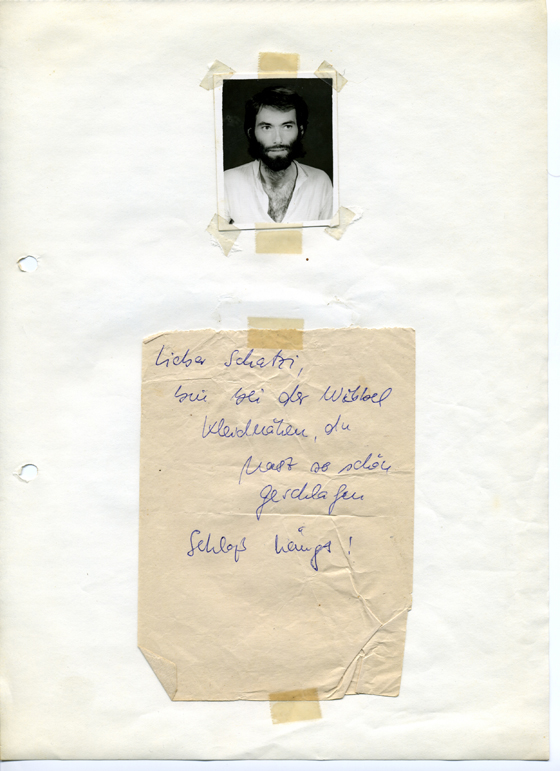 Lieber Schatzi,
bin bei der Wübbel
Kleidnähen, du
hast so schön
geschlafen
Schloß hängt!